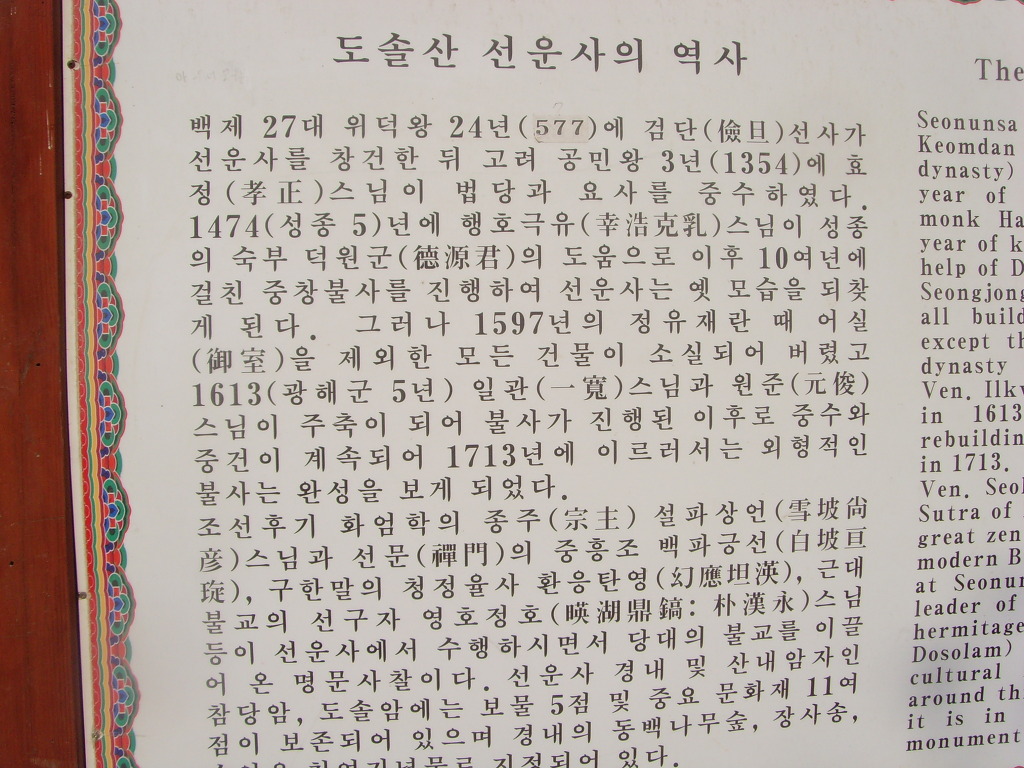 도솔산 선운사의 역사
백제 27대 위덕왕 24년(577)에 검단(儉旦)선사가
선운사를 창건한 뒤 고려 공민왕 3년(1354)에 효
정(孝正)스님이 법당과 요사를 중수하였다.
1474(성종 5)년에 행호극유(幸浩克乳)스님이 성종
의 숙부 덕원군(德源君)의 도움으로 이후 10여년에
걸친 중창불사를 진행하여 선운사는 옛 모습을 되찾
게 된다. 그러나 1597년의 정유재란 때 어실
(御室)을 제외한 모든 건물이 소실되어 버렸고
1613(광해군 5년) 일관(一寬)스님과 원준(元俊)
스님이 주축이 되어 불사가 진행된 이후로 중수와
중건이 계속되어 1713년에 이르러서는 외형적인
불사는 완성을 보게 되었다.
조선후기 화엄학의 종주(宗主) 설파상언(雪坡尙
彦)스님과 선문(禪門)의 중흥조 백파긍선(白坡亘
璇), 구한말의 청정율사 환응탄영(幻應坦渶), 근대
불교의 선구자 영호정호(暎湖鼎鎬: 朴漢永)스님
등이 선운사에서 수행하시면서 당대의 불교를 이끌
어 온 명문사찰이다. 선운사 경내 및 산내암자인
참당암, 도솔암에는 보물 5점 및 중요 문화재 11여
점이 보존되어 있으며 경내의 동백나무숲, 장사송,
지정되어 있다.
The
Seonunsa
Keomdan
dynasty)
year of
monk Ha
year of k
help of D
Seongjong
all build
except th
dynasty
Ven. Ilkw
in 1613
rebuildin
in 1713.
Ven. Seol
Sutra of
great zen
modern B
at Seonun
leader of
hermitage
Dosolam)
cultural
around th
it is in
monument